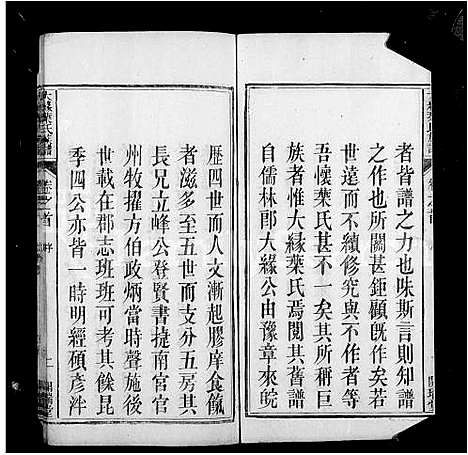 者皆譜之力也味斯言則知譜
之作也所關甚鉅顧旣作矣若
世遠而不續修究與不作者等
吾懷葉氏甚不一矣其所稱巨
族者惟大緣葉氏焉閱其舊譜
自儒林郎大緣公由豫章來皖
歷四世而人文漸起膠庠食餼
者滋多至五世而支分五房其
長兄立峰公登賢書捷南宮官
州牧擢方伯政炳當時聲施後
世載在郡志班班可考其餘昆
季四公亦皆一時明經碩彦泮